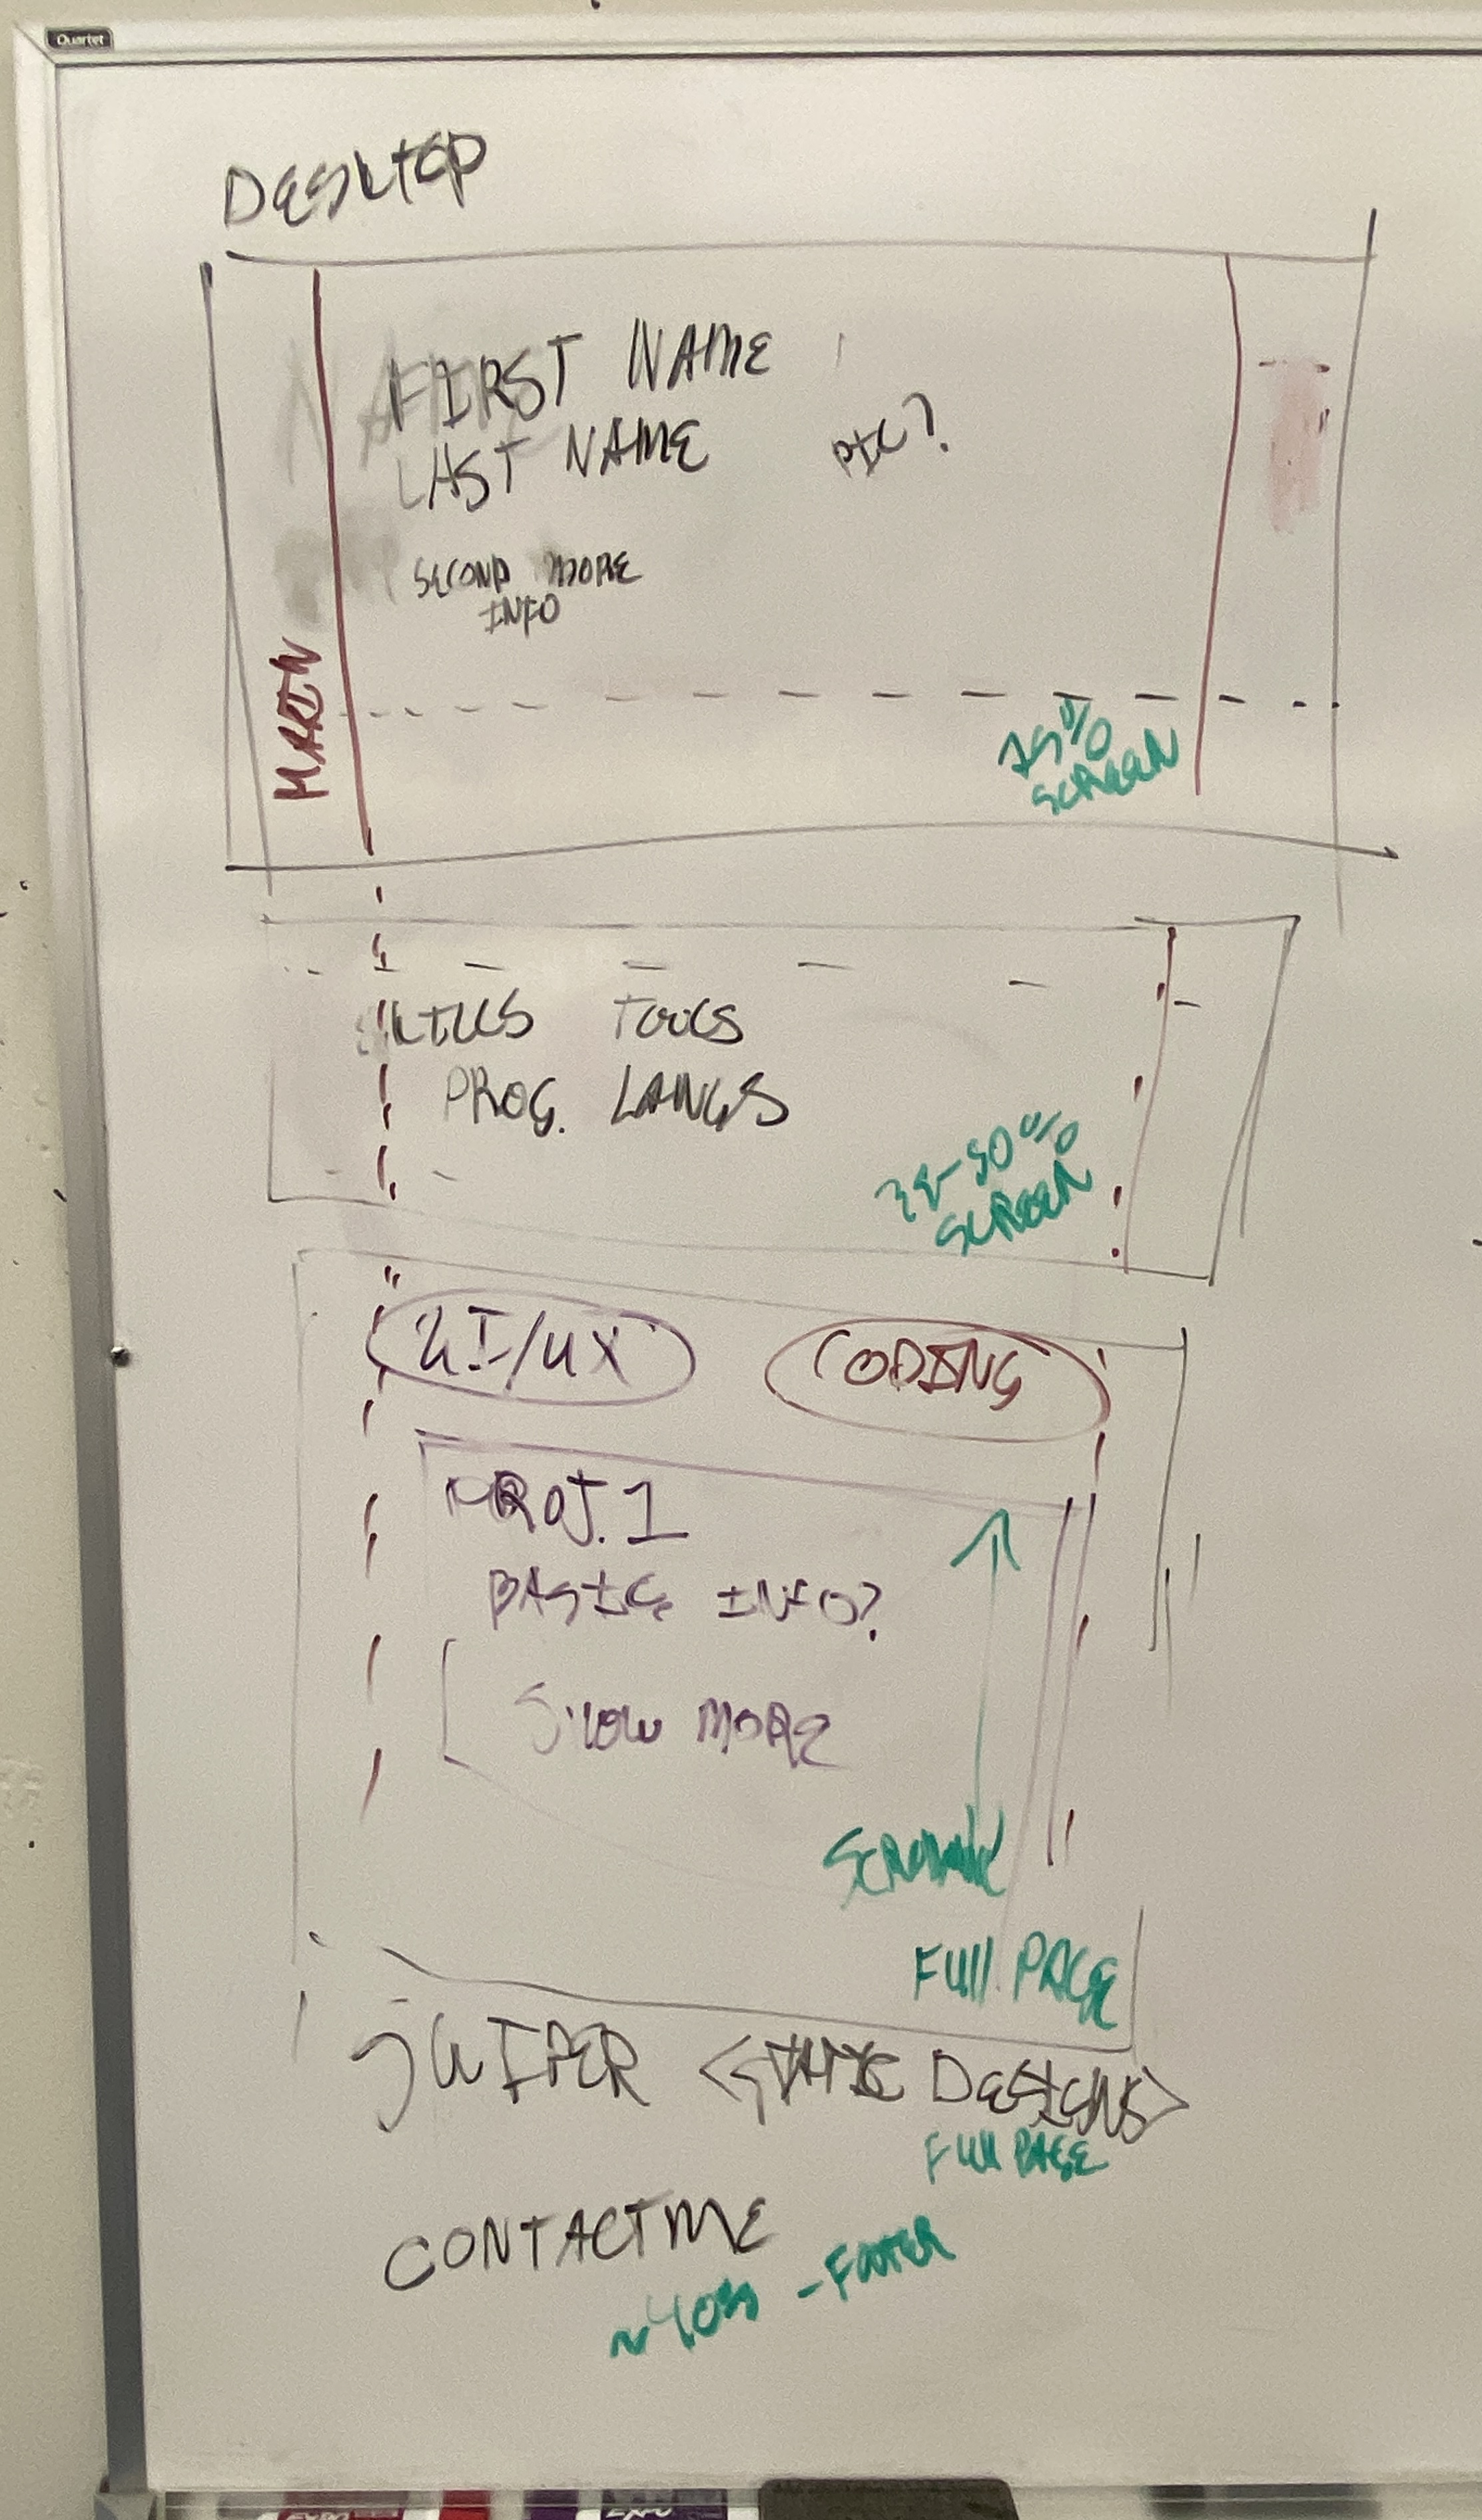 Quartet
DESKTOP
FIRST NAME
LAST NAME
PIC?
SECOND MORE
INFO
75%
SCREEN
SKILLS TOOLS
PROG. LANGS
SCREEN
UI/UX
CODING
PROJ. 1
BASIC INFO?
SHOW MORE
FULL PAGE
SWIPER <STATIC DESIGNS>
FULL PAGE
CONTACT ME
- FOOTER
EXPO